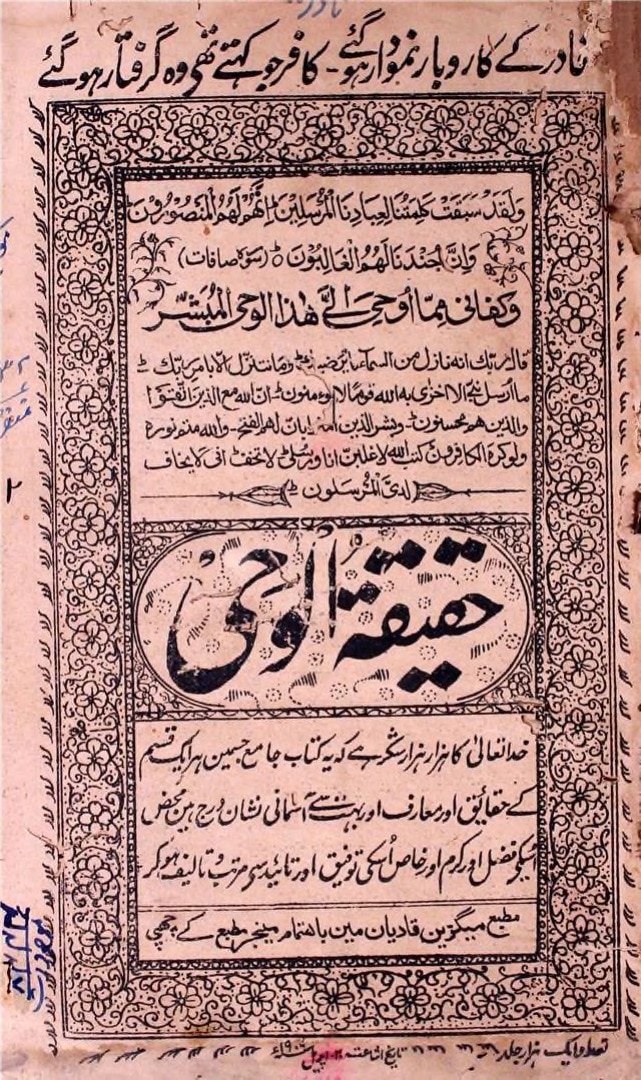 نادر کے کاروبار نمودار ہوگئے - کافر جو کہتے تھے وہ گرفتار ہوگئے
وَلَقَدْ سَبَقَتْ كَلِمَتُنَا لِعِبَادِنَا الْمُرْسَلِيْنَ اِنَّهُمْ لَهُمُ الْمَنْصُوْرُوْنَ
وَاِنَّ جُنْدَنَا لَهُمُ الْغَالِبُوْنَ (سورة صافات)
وكفانى مما اُوحى الىّ هٰذا الوحى المُبشّر
قال ربك انه نازل من السماء ما يرضيك وما نتنزل الا بامر ربك
ما ارسل نبى الا اخزى به الله قوما لا يؤمنون ان الله مع الذين اتقوا
والذين هم محسنون وبشر الذين اٰمنوا بان لهم الفتح - والله متم نوره
ولو كره الكافرون كتب الله لاغلبن انا ورسلى لا تخف انى لا يخاف
لدىّ المرسلون
حقیقة الوحی
خدا تعالیٰ کا ہزار ہزار شکر ہے کہ یہ کتاب جامع جسمیں ہر ایک قسم
کے حقائق اور معارف اور بہت سے آسمانی نشان درج ہیں محض
اُسکے فضل اور کرم اور خاص اُسکی توفیق اور تائید سے مرتب و تالیف ہو کر
مطبع میگزین قادیان مین باهتمام مینجر مطبع کے چھپی
تعداد ایک ہزار جلد
تاریخ اشاعت اپریل
۲